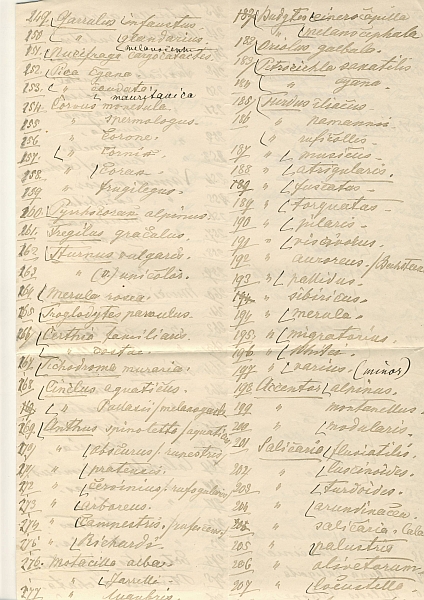 249. Garrulus infaustus
250. " glandarius
melanocephal
251. Nucifraga caryocatactes
252. Pica cyana
253. " caudata
mauritanica
254. Corvus monedula
255. " spermologus.
256. " Corone.
257. " Cornix
258. " Corax
259 " frugilegus.
260. Pyrrhocorax alpinus
261. Fregilus graculus.
262. Sturnus vulgaris
263. " (v.) unicolor.
264. Merula rosea
265. Troglodytes parvulus.
266. Certhia familiaris
267. Tichodroma muraria
268. Cinclus aquaticus.
" Pallasii/melanogaster
269. Anthus spinoletta/aquaticus
270 " obscurus/rupestris
271 " pratensis
272 " Cervinus/rufogularis
273 " arboreus
274 " Campestris/rufescens
275 " Richardi
276. Motacilla alba
" Yarrelli
277 " lugubris
Budytes cinereocapilla
" melanocephala
182 Oriolus galbula.
183 Petrocichla saxatilis
184 " cyana.
185 Turdus iliacus
186 " naumannii
" ruficollis.
187 " musicus
188 " atrogularis.
189 " fuscatus
189 " torquatus
190 " pilaris
191 " viscivorus.
192 " aureus.
193 " pallidus
194 " sibiricus.
194 " merula.
195. " migratorius.
196 "
197. " varius. (minor)
198 Accentor alpinus.
199 " montanellus.
200 " modularis.
201 Salicaria fluviatilis.
202 " luscinoides.
203 " Turdoides.
204 " arundinacea.
" salicaria.
205 " palustris
206 " olivetorum.
207 " locustella